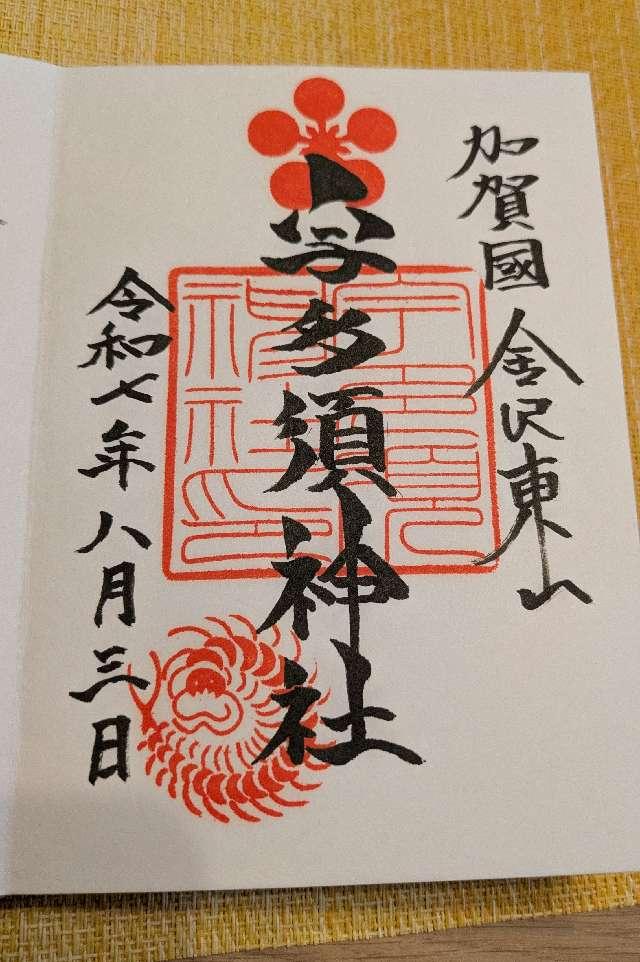 加賀國金沢東山
宇多須神社
令和七年八月三日